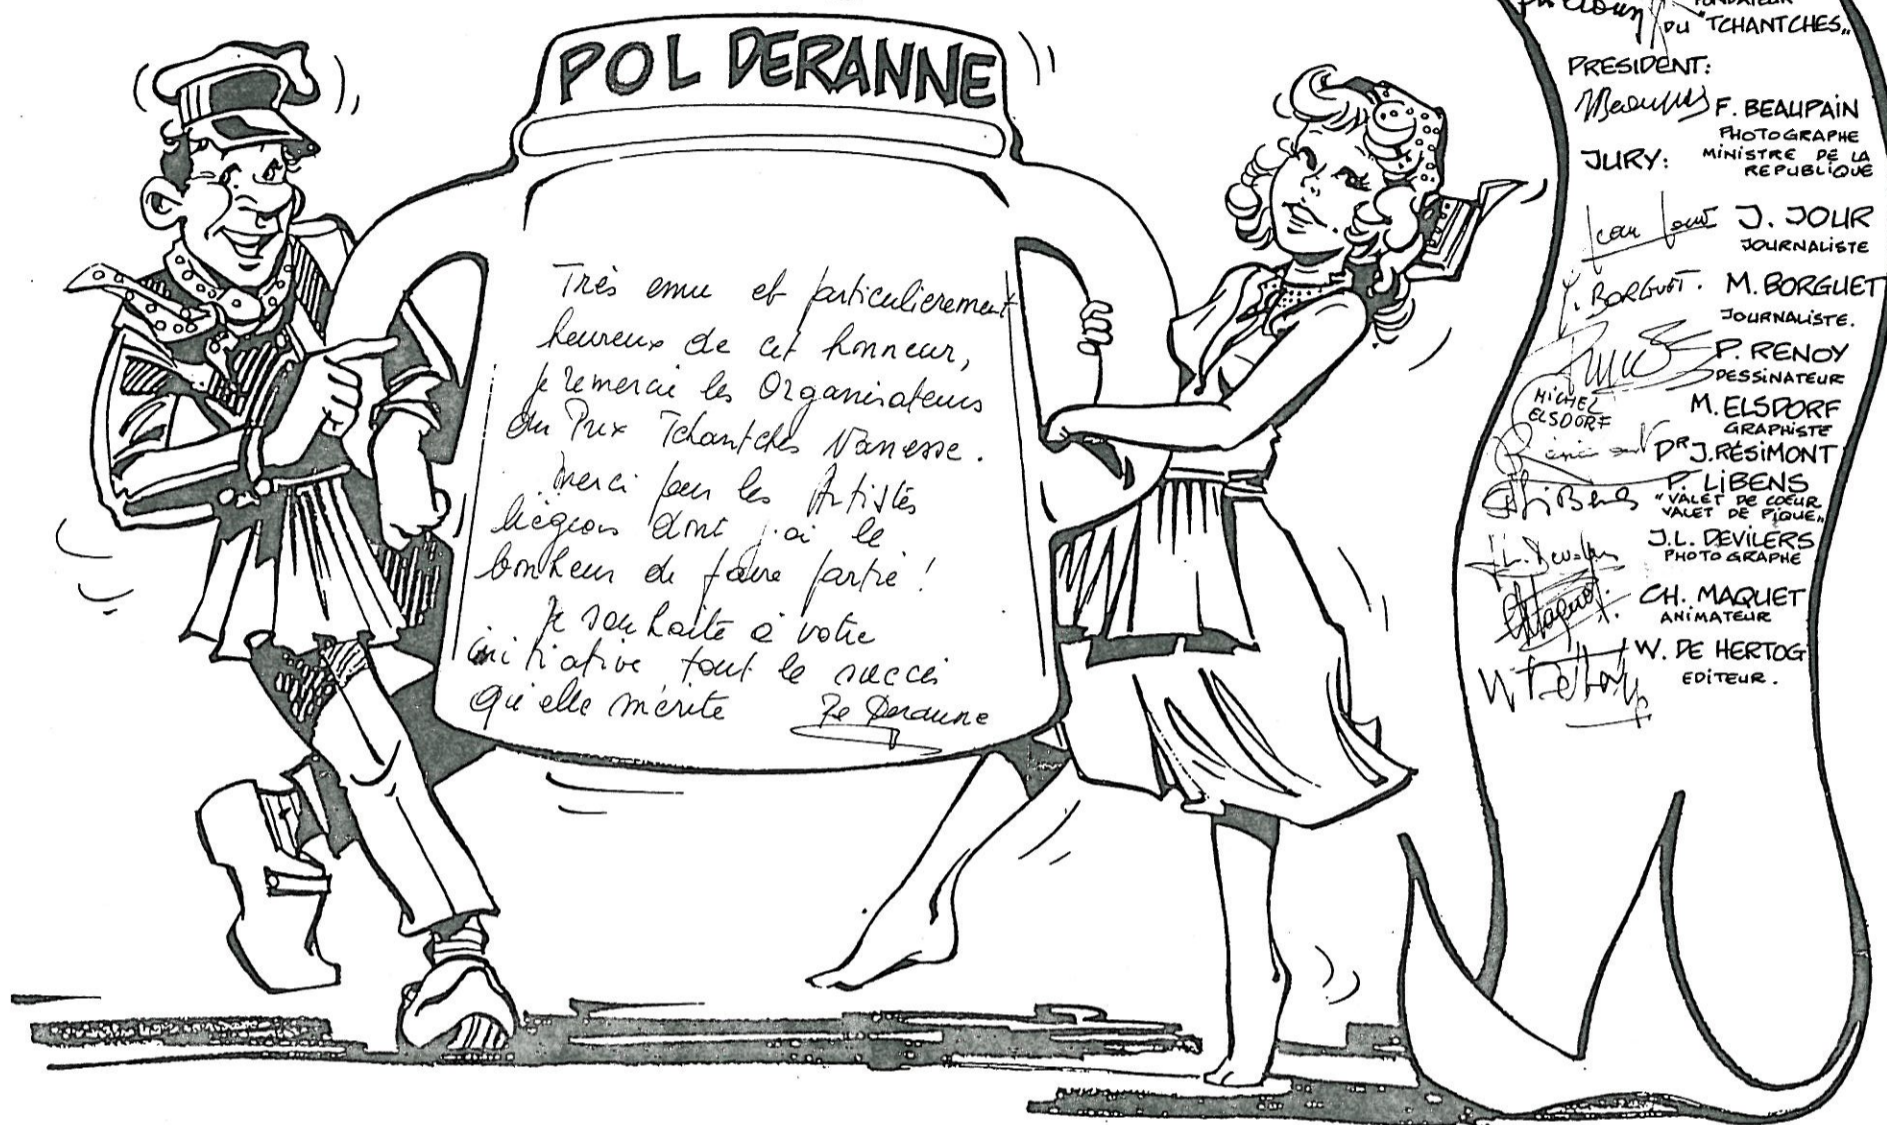 POL DERANNE
Très emu et particulierement
heureux de cet honneur,
je remercie les Organisateurs
du Prix Tchantchès Nanesse.
Merci pour les Artistes
liégeois dont j'ai le
bonheur de faire partie !
Je souhaite à votre
initiative tout le succès
qu'elle mérite
FONDATEUR
DU "TCHANTCHES„
PRESIDENT:
F. BEAUPAIN
PHOTOGRAPHE
MINISTRE DE LA
REPUBLIQUE
JURY:
J. JOUR
JOURNALISTE
BORGUET. M. BORGUET
JOURNALISTE.
P. RENOY
DESSINATEUR
MICHEL
ELSDORF
M. ELSDORF
GRAPHISTE
DR J. RÉSIMONT
P. LIBENS
"VALET DE COEUR
VALET DE PIQUE„
J.L. DEVILERS
PHOTOGRAPHE
CH. MAQUET
ANIMATEUR
W. DE HERTOG
EDITEUR.